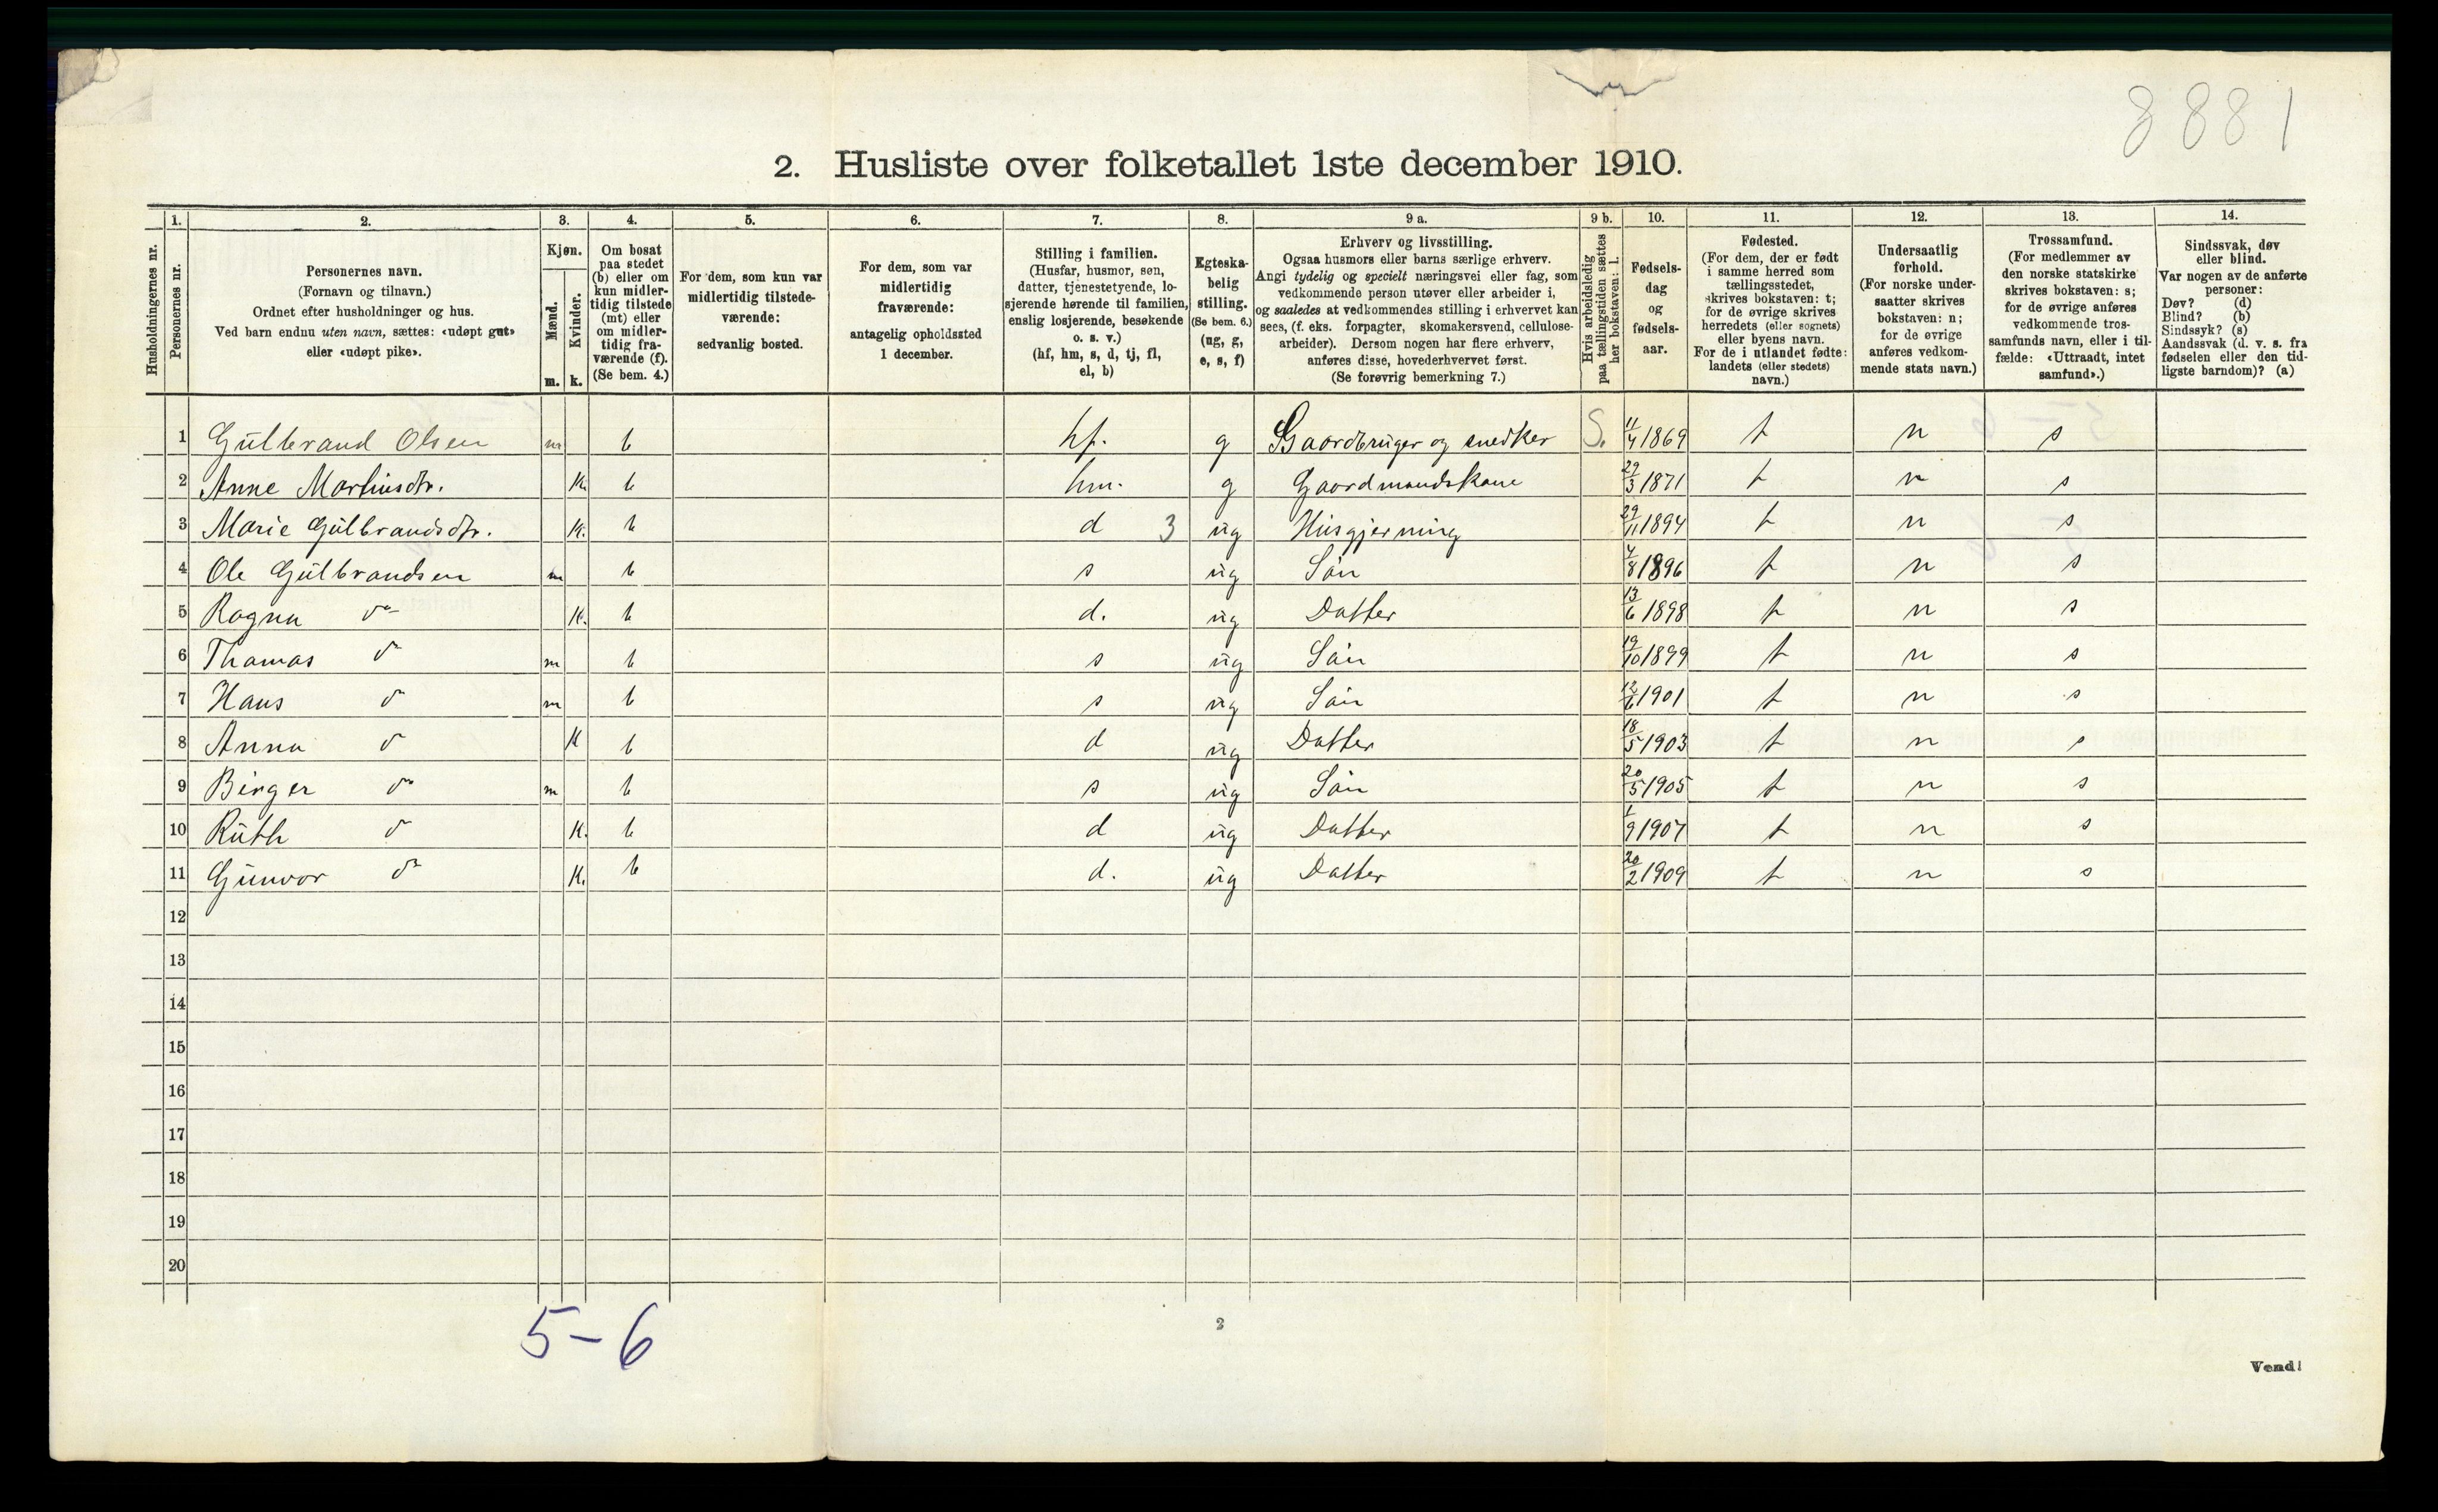 8881
2. Husliste over folketallet 1ste december 1910.
Husholdningernes nr.
1. Personernes nr.
2. Personernes navn.
(Fornavn og tilnavn.)
Ordnet efter husholdninger og hus.
Ved barn endnu uten navn, sættes: «udøpt gut»
eller «udøpt pike».
3. Kjøn.
Mænd. m.
Kvinder. k.
4. Om bosat
paa stedet
(b) eller om
kun midler-
tidig tilstede
(mt) eller
om midler-
tidig fra-
værende (f).
(Se bem. 4.)
5. For dem, som kun var
midlertidig tilstede-
værende:
sedvanlig bosted.
6. For dem, som var
midlertidig
fraværende:
antagelig opholdssted
1 december.
7. Stilling i familien.
(Husfar, husmor, søn,
datter, tjenestetyende, lo-
sjerende hørende til familien,
enslig losjerende, besøkende
o. s. v.)
(hf, hm, s, d, tj, fl,
el, b)
8. Egteska-
belig
stilling.
(Se bem. 6.)
(ug, g,
e, s, f)
9 a. Erhverv og livsstilling.
Ogsaa husmors eller barns særlige erhverv.
Angi tydelig og specielt næringsvei eller fag, som
vedkommende person utøver eller arbeider i,
og saaledes at vedkommendes stilling i erhvervet kan
sees, (f. eks. forpagter, skomakersvend, cellulose-
arbeider). Dersom nogen har flere erhverv,
anføres disse, hovederhvervet først.
(Se forøvrig bemerkning 7.)
9 b. Hvis arbeidsledig
paa tællingstiden sættes
her bokstaven: l.
10. Fødsels-
dag
og
fødsels-
aar.
11. Fødested.
(For dem, der er født
i samme herred som
tællingsstedet,
skrives bokstaven: t;
for de øvrige skrives
herredets (eller sognets)
eller byens navn.
For de i utlandet fødte:
landets (eller stedets)
navn.)
12. Undersaatlig
forhold.
(For norske under-
saatter skrives
bokstaven: n;
for de øvrige
anføres vedkom-
mende stats navn.)
13. Trossamfund.
(For medlemmer av
den norske statskirke
skrives bokstaven: s;
for de øvrige anføres
vedkommende tros-
samfunds navn, eller i til-
fælde: «Uttraadt, intet
samfund».)
14. Sindssvak, døv
eller blind.
Var nogen av de anførte
personer:
Døv? (d)
Blind? (b)
Sindssyk? (s)
Aandssvak (d. v. s. fra
fødselen eller den tid-
ligste barndom)? (a)
1 Gulbrand Olsen m b hf. g Gaardbruger og snedker S. 11/4 1869 t n s
2 Anne Martinsdtr. K. b hm. g Gaardmandskone 29/3 1871 t n s
3 Marie Gulbrandsdtr. K. b d 3 ug Husgjerning 29/11 1894 t n s
4 Ole Gulbrandsen m b s ug Søn 4/8 1896 t n s
5 Ragna do K. b d. ug Datter 13/6 1898 t n s
6 Thomas do m b s ug Søn 19/10 1899 t n s
7 Hans do m b s ug Søn 12/6 1901 t n s
8 Anna do K b d ug Datter 18/5 1903 t n s
9 Birger do m b s ug Søn 20/5 1905 t n s
10 Ruth do K. b d ug Datter 1/9 1907 t n s
11 Gunvor do K. b d. ug Datter 20/2 1909 t n s
12
13
14
15
16
17
18
19
20
5-6
2
Vend!